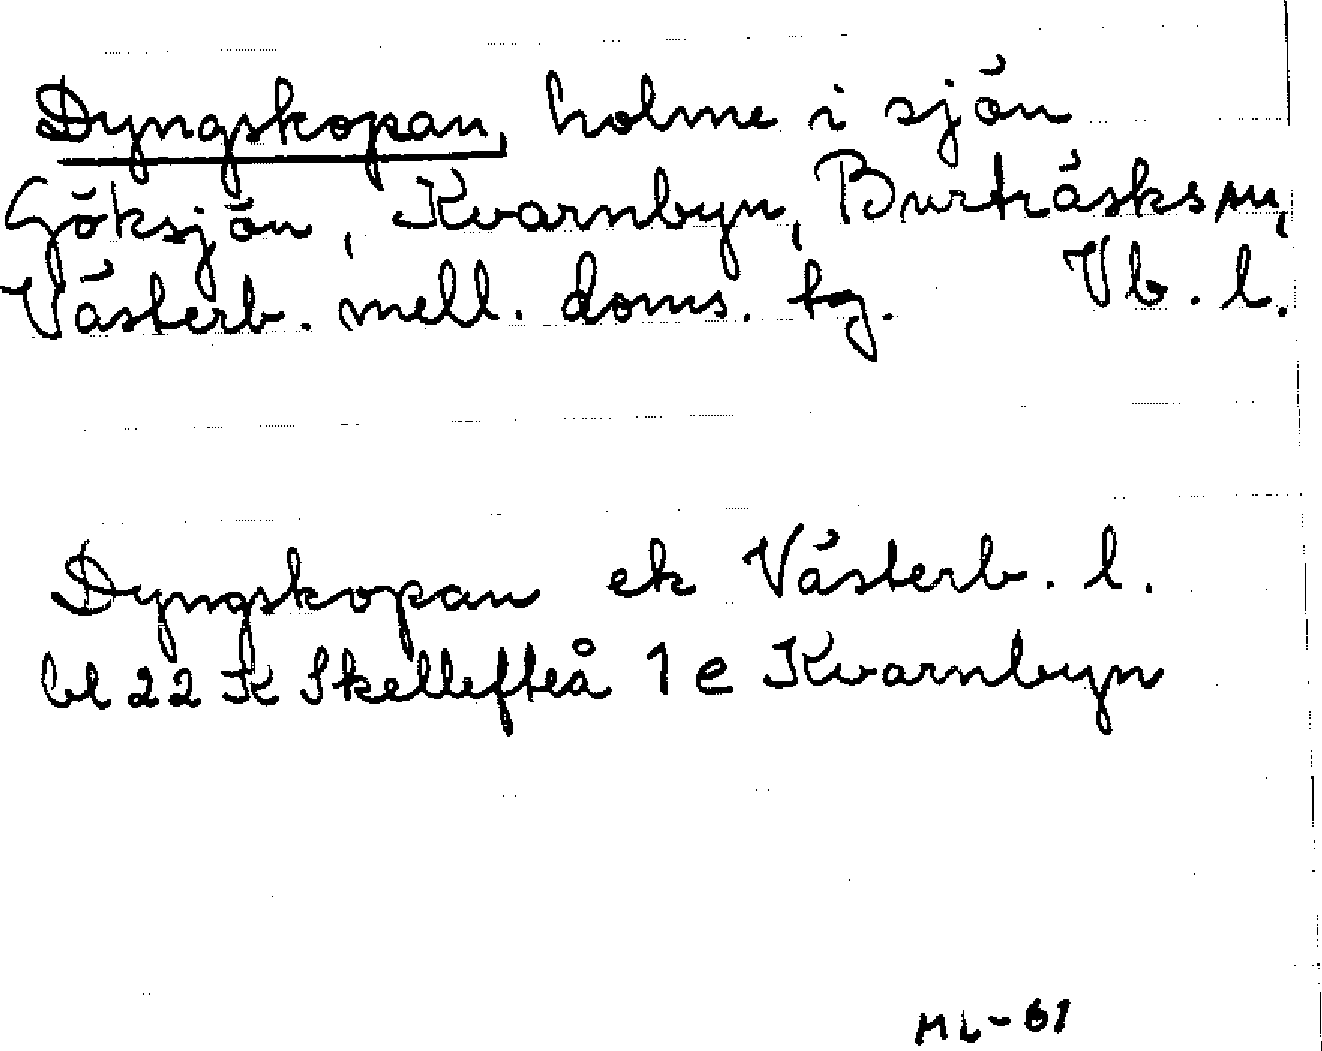 Dyngskopan, holme i sjön
Göksjön, Kvarnbyn, Burträsks sn,
Västerb. mell. doms. tg. Vb. l.
Dyngskopan ek Västerb. l.
bl 22 K Skellefteå 1 e Kvarnbyn
ML-61